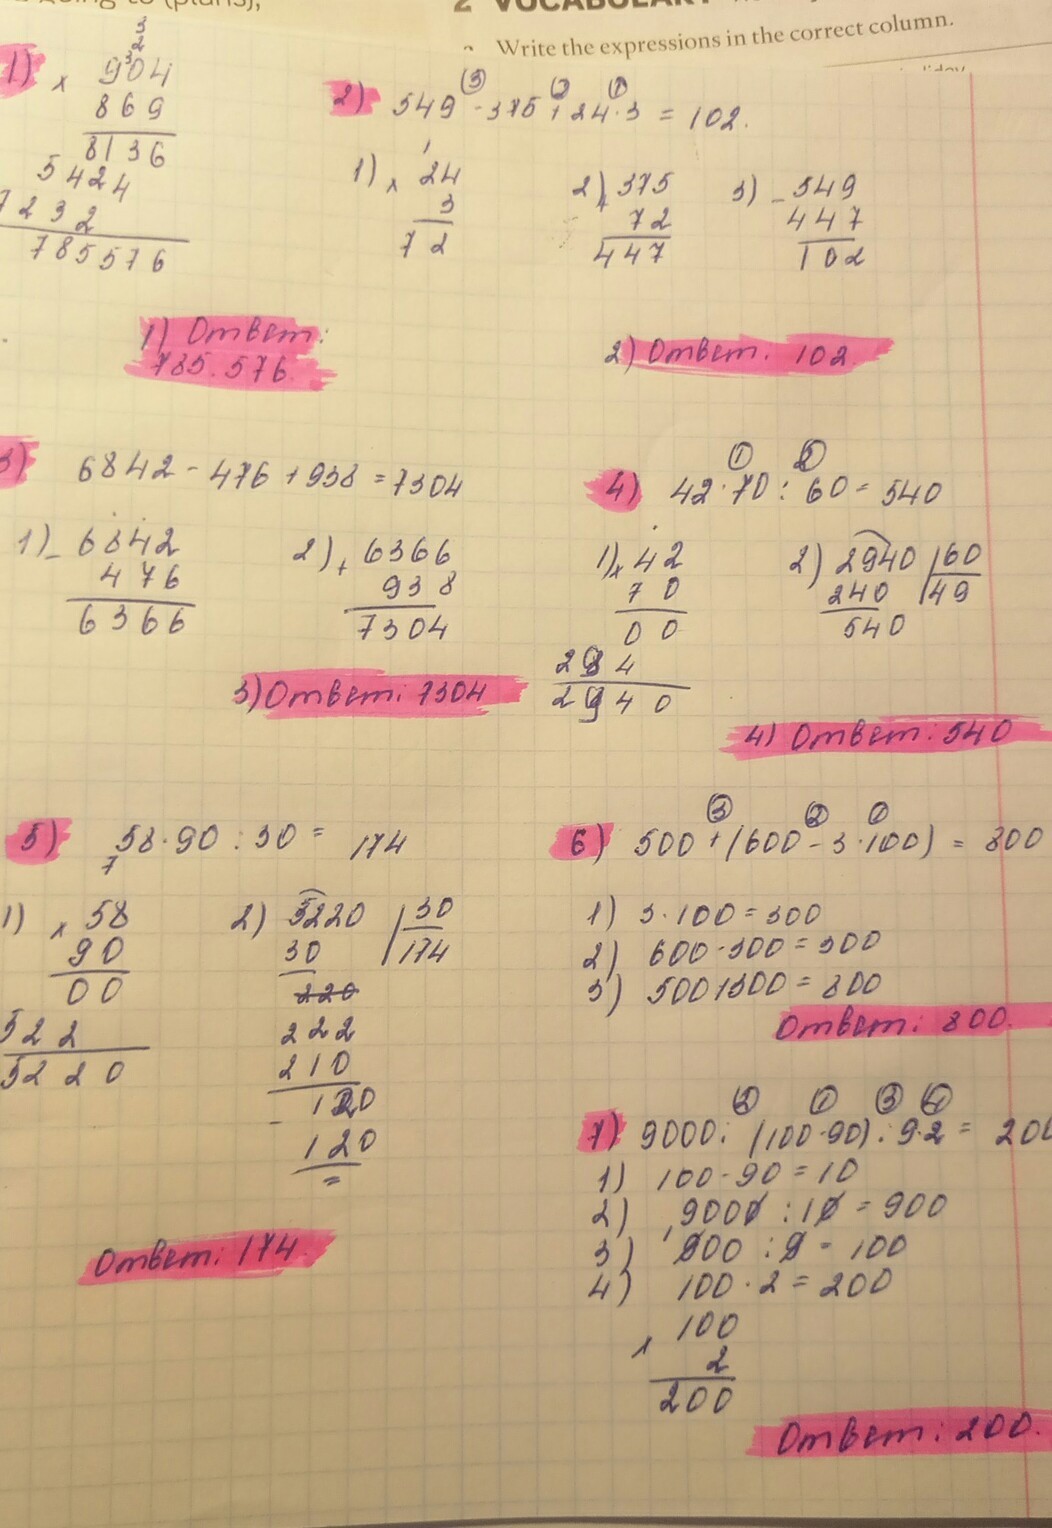 2 VOCABULARY
Write the expressions in the correct column.
1) × 904
869
8136
5424
7232
785576
1) Ответ:
785.576.
2) 549 - 375 + 24 · 3 = 102.
1) × 24
3
72
2) + 375
72
447
3) - 549
447
102
2) Ответ. 102
3) 6842 - 476 + 938 = 7304
1) - 6842
476
6366
2) + 6366
938
7304
3) Ответ: 7304
4) 42 · 70 : 60 = 540
1) × 42
70
00
294
2940
2) 2940 | 60
240 | 49
540
4) Ответ: 540
5) 58 · 90 : 30 = 174
1) × 58
90
00
522
5220
2) 5220 | 30
30 | 174
220
222
210
- 120
120
Ответ: 174
6) 500 + (600 - 3 · 100) = 800
1) 3 · 100 = 300
2) 600 - 300 = 300
3) 500 + 300 = 800
Ответ: 800.
7) 9000 : (100 - 90) : 9 · 2 = 200
1) 100 - 90 = 10
2) 9000 : 10 = 900
3) 900 : 9 = 100
4) 100 · 2 = 200
× 100
2
200
Ответ: 200.